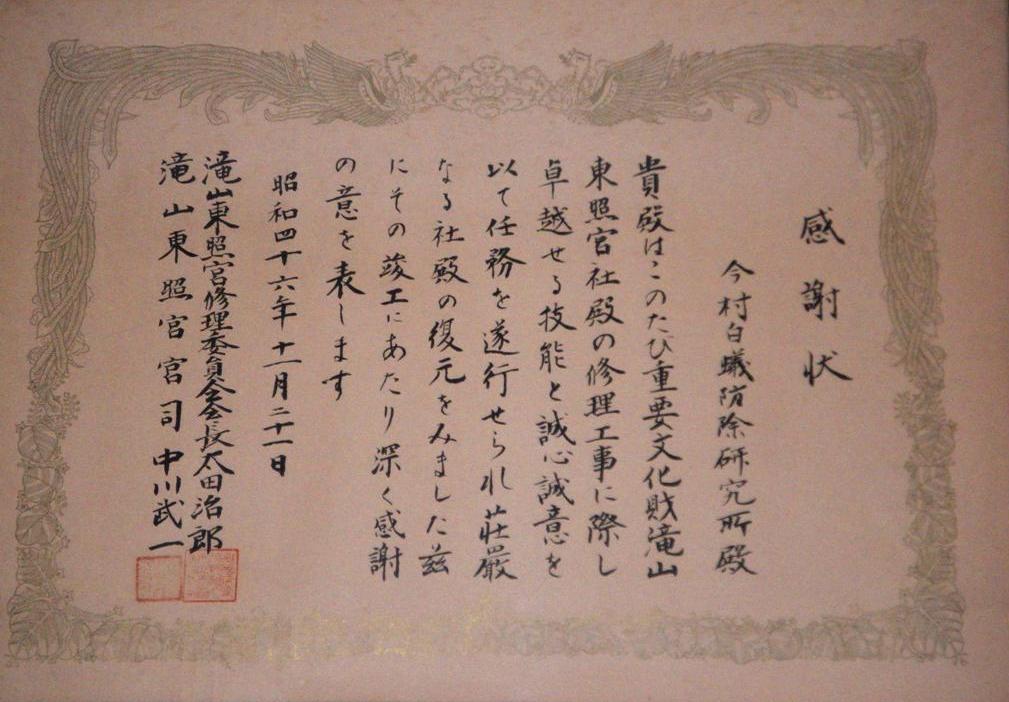 感謝状
今村白蟻防除研究所殿
貴殿はこのたび重要文化財滝山
東照宮社殿の修理工事に際し
卓越せる技能と誠心誠意を
以て任務を遂行せられ荘厳
なる社殿の復元をみました茲
にその竣工にあたり深く感謝
の意を表します
昭和四十六年十一月二十一日
滝山東照宮修理委員会会長太田治郎
滝山東照宮宮司中川武一